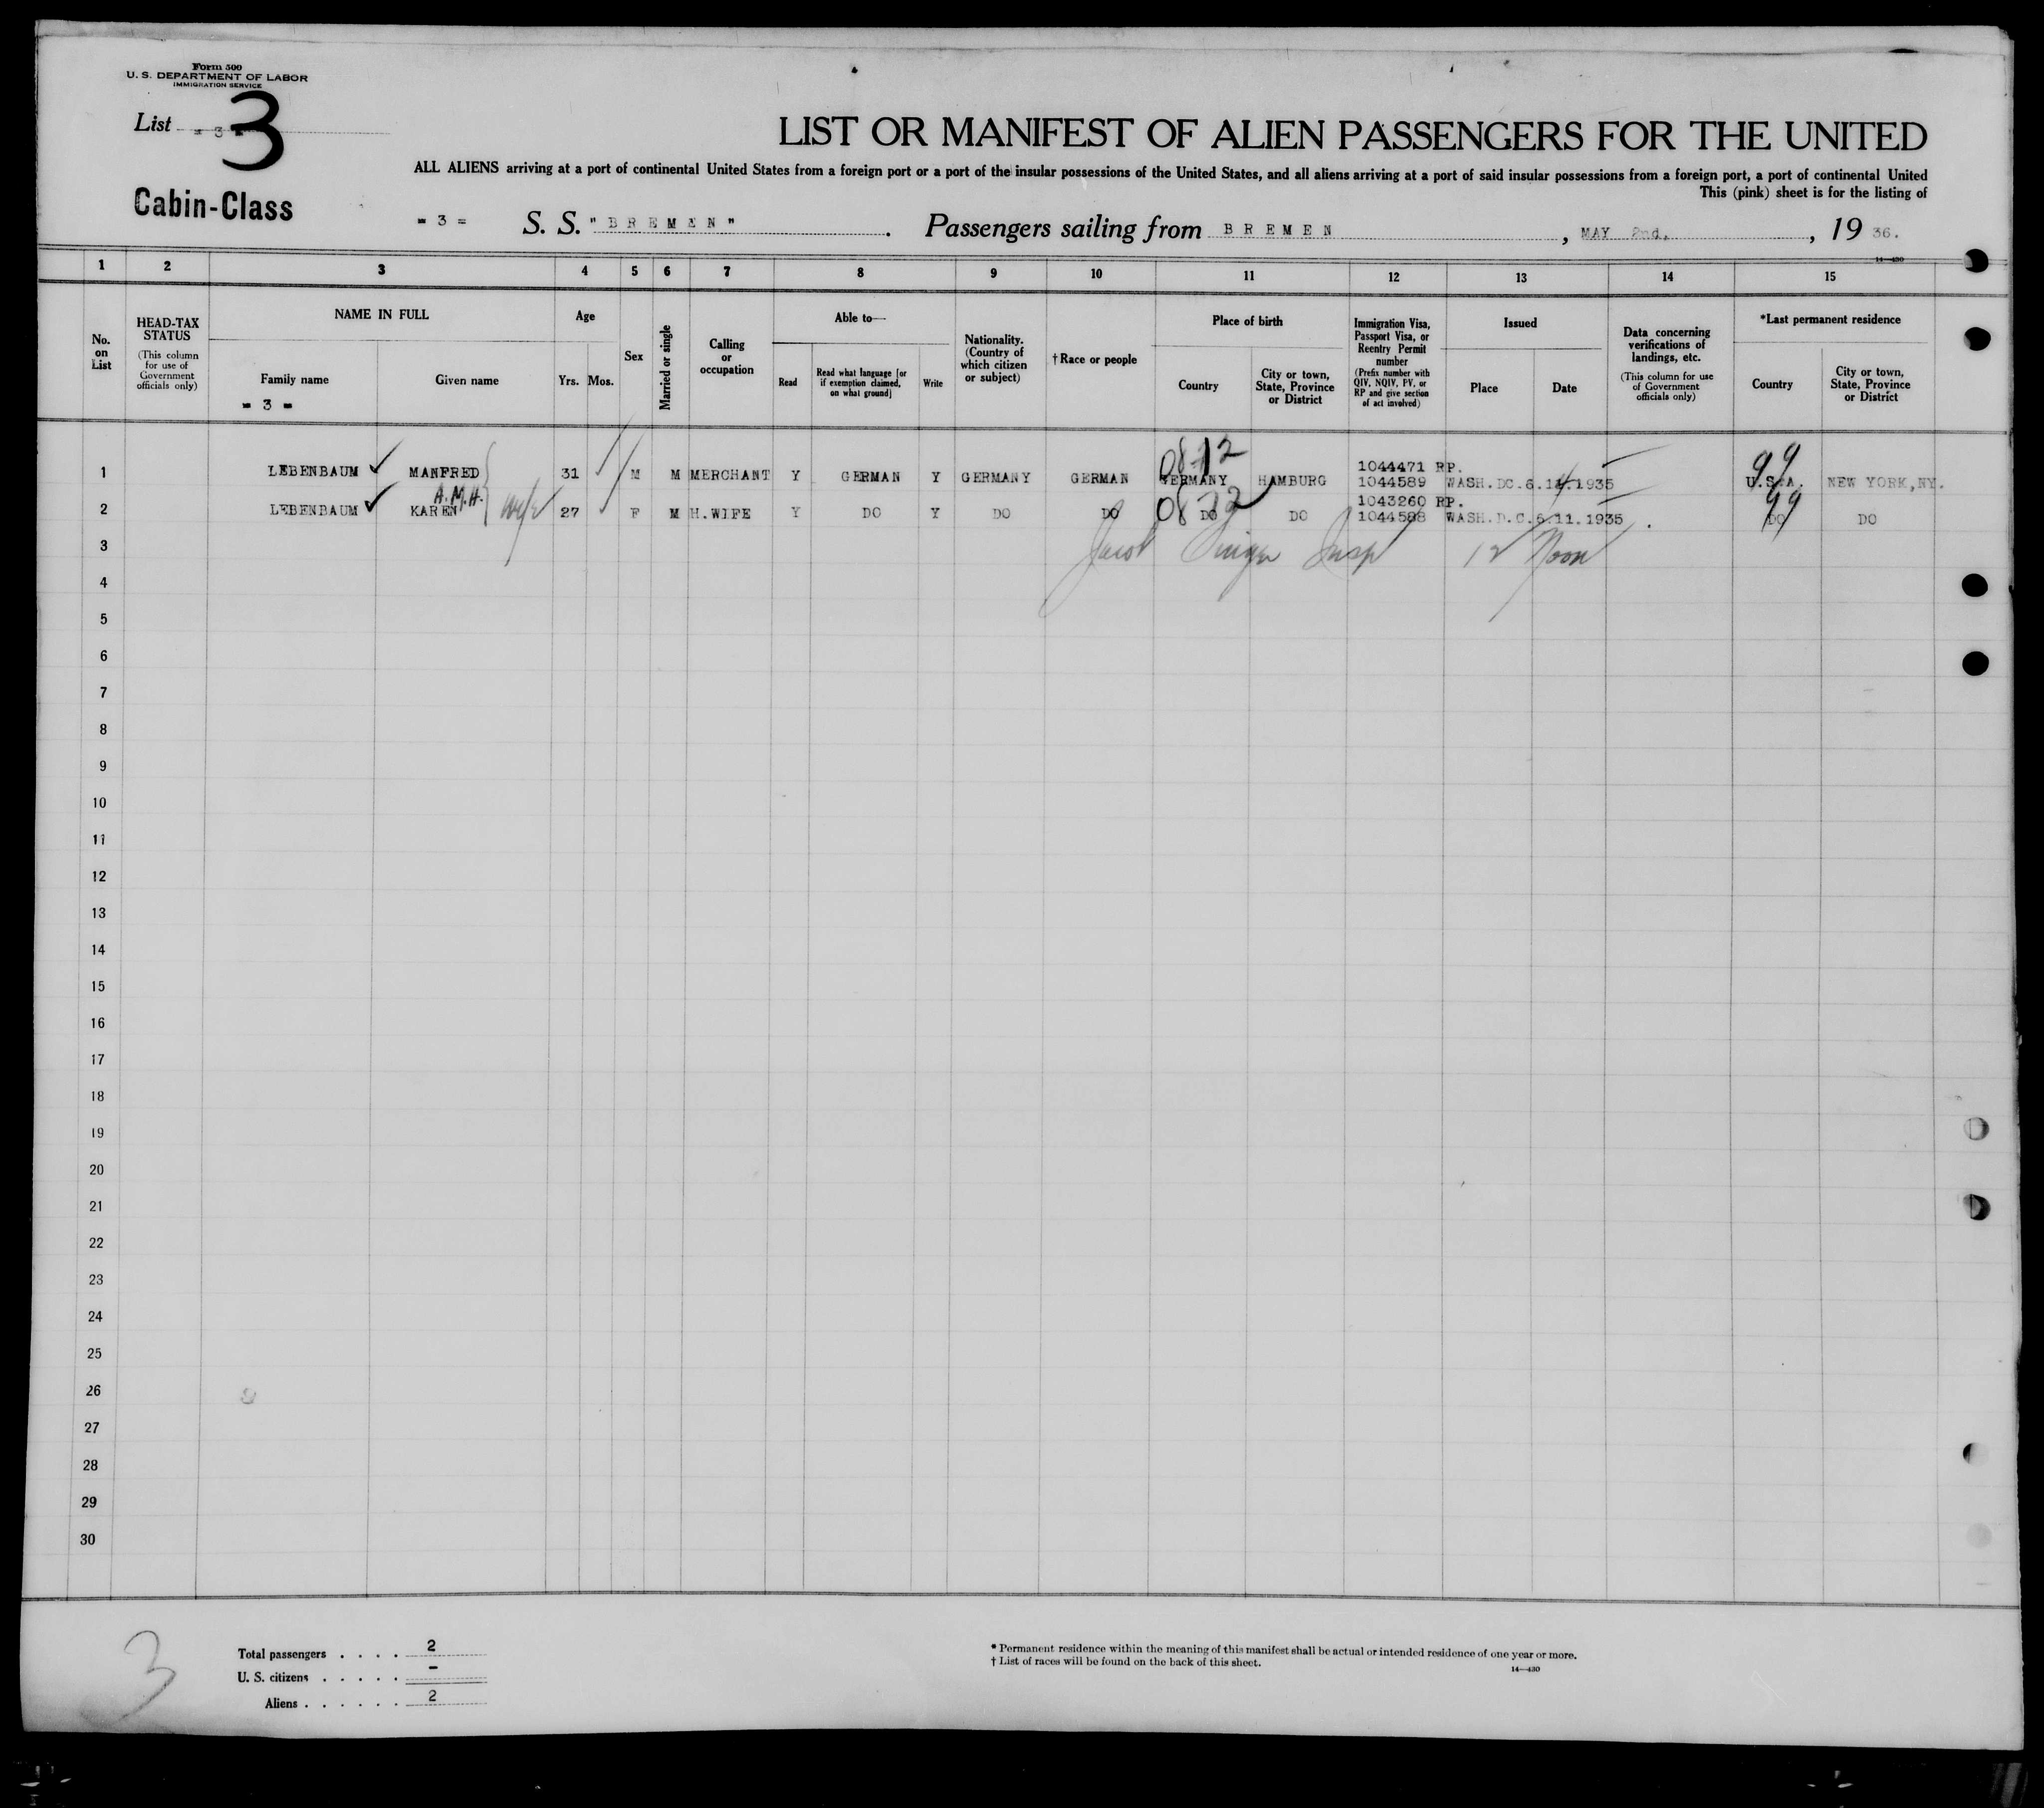 Form 500
U. S. DEPARTMENT OF LABOR
IMMIGRATION SERVICE
List = 3 = 3
LIST OR MANIFEST OF ALIEN PASSENGERS FOR THE UNITED
ALL ALIENS arriving at a port of continental United States from a foreign port or a port of the insular possessions of the United States, and all aliens arriving at a port of said insular possessions from a foreign port, a port of continental United
This (pink) sheet is for the listing of
Cabin-Class
= 3 = S. S. "BREMEN". Passengers sailing from BREMEN, MAY 2nd, 19 36.
14—430
1 2 3 4 5 6 7 8 9 10 11 12 13 14 15
No. on List
HEAD-TAX STATUS (This column for use of Government officials only)
NAME IN FULL
Family name
Given name
- 3 -
Age
Yrs. Mos.
Sex
Married or single
Calling or occupation
Able to—
Read
Read what language [or if exemption claimed, on what ground]
Write
Nationality. (Country of which citizen or subject)
†Race or people
Place of birth
Country
City or town, State, Province or District
Immigration Visa, Passport Visa, or Reentry Permit number (Prefix number with QIV, NQIV, PV, or RP and give section of act involved)
Issued
Place
Date
Data concerning verifications of landings, etc. (This column for use of Government officials only)
*Last permanent residence
Country
City or town, State, Province or District
1 LEBENBAUM MANFRED 31 M M MERCHANT Y GERMAN Y GERMANY GERMAN GERMANY HAMBURG 1044471 RP. 1044589 WASH.DC. 1935 U.S.A. NEW YORK,NY.
99
A.M.H.
wife
2 LEBENBAUM KAREN 27 F M H.WIFE Y DO Y DO DO DO DO 1043260 RP. 1044588 WASH.D.C. 6.11.1935 DO DO
99
Insp 12 Noon
3
4
5
6
7
8
9
10
11
12
13
14
15
16
17
18
19
20
21
22
23
24
25
26
27
28
29
30
3
Total passengers . . . . 2
U. S. citizens . . . . . -
Aliens . . . . . . 2
* Permanent residence within the meaning of this manifest shall be actual or intended residence of one year or more.
† List of races will be found on the back of this sheet.
14—430